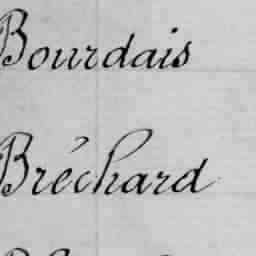 Bourdais
Bréchard